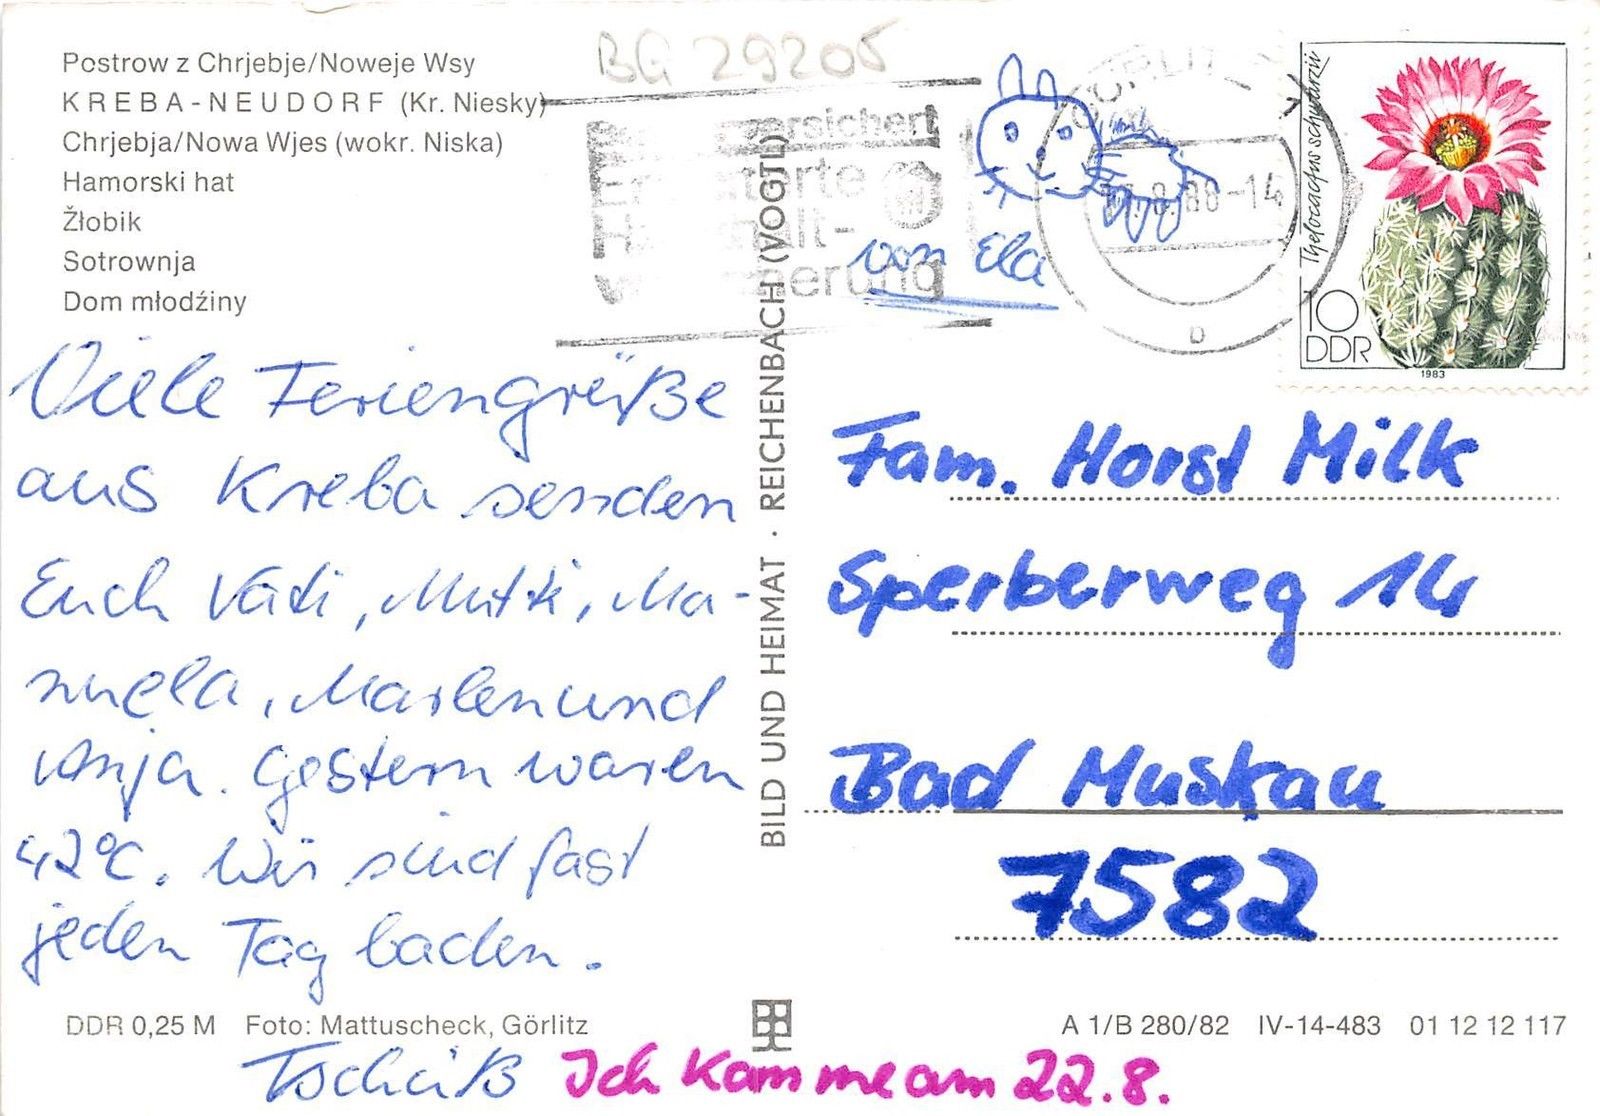 BG 29205
Postrow z Chrjebje/Noweje Wsy
KREBA-NEUDORF (Kr. Niesky)
Chrjebja/Nowa Wjes (wokr. Niska)
Hamorski hat
Žłobik
Sotrownja
Dom młodźiny
Viele Feriengrüße
aus Kreba senden
Euch Vati, Mutti, Ma-
nuela, Marlen und
Anja. Gestern waren
42°C. Wir sind fast
jeden Tag baden.
DDR 0,25 M Foto: Mattuscheck, Görlitz
Tschüß Ich kamme am 22.8.
BILD UND HEIMAT · REICHENBACH (VOGTL)
von Ela
Thelocactus schwarzii
10
DDR
1983
Fam. Horst Milk
Sperberweg 14
Bad Muskau
7582
A 1/B 280/82 IV-14-483 01 12 12 117